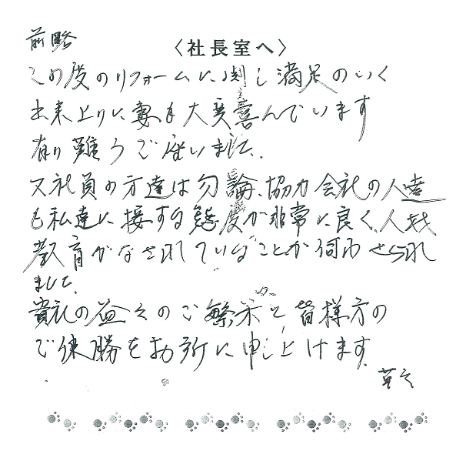 前略
〈社長室へ〉
この度のリフォームに関し満足のいく
出来上りに妻も大変喜んでいます
有り難うご座いました、
又社員の方達は勿論、協力会社の人達
も私達に接する態度が非常に良く、人材
教育がなされていることが伺わせられ
ました
貴社の益々のご繁栄と皆様方の
ご健勝をお祈に申し上げます
草々